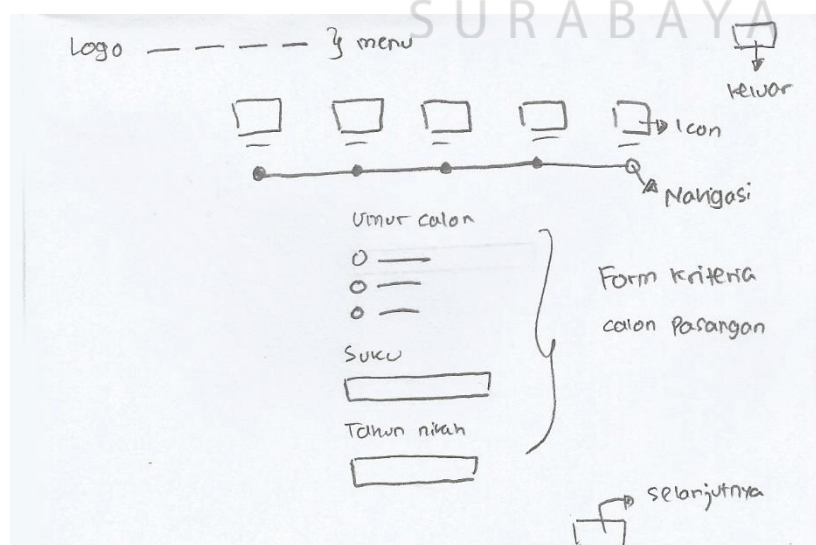 SURABAYA
Logo
menu
keluar
Icon
Navigasi
Umur calon
Form kriteria
calon Pasangan
Suku
Tahun nikah
selanjutnya